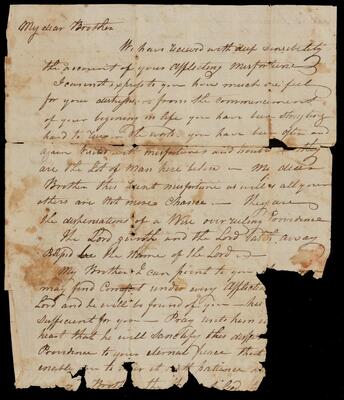 My dear Brother
We have received with deep sensibility
the account of your afflicting misfortune
I cannot express to you how much we feel
for your distress, from the commencement
of your beginning in life you have been struggling
hard to live in the world you have been often and
again tried with misfortunes and
are the Lot of man here below — My dear
Brother this last misfortune as well as all your
others are not mere Chance — they are
the dispensation of a Wise overruling Providence
The Lord giveth and the Lord taketh away
Blessed be the Name of the Lord —
My Brother I can point to you
may find Comfort under every afflicti
Lord and he will be found of you — his
sufficient for you — Pray with
heart that he will sanctify this
Providence to your eternal peace that
enable you to bear it with patience an
Brother the